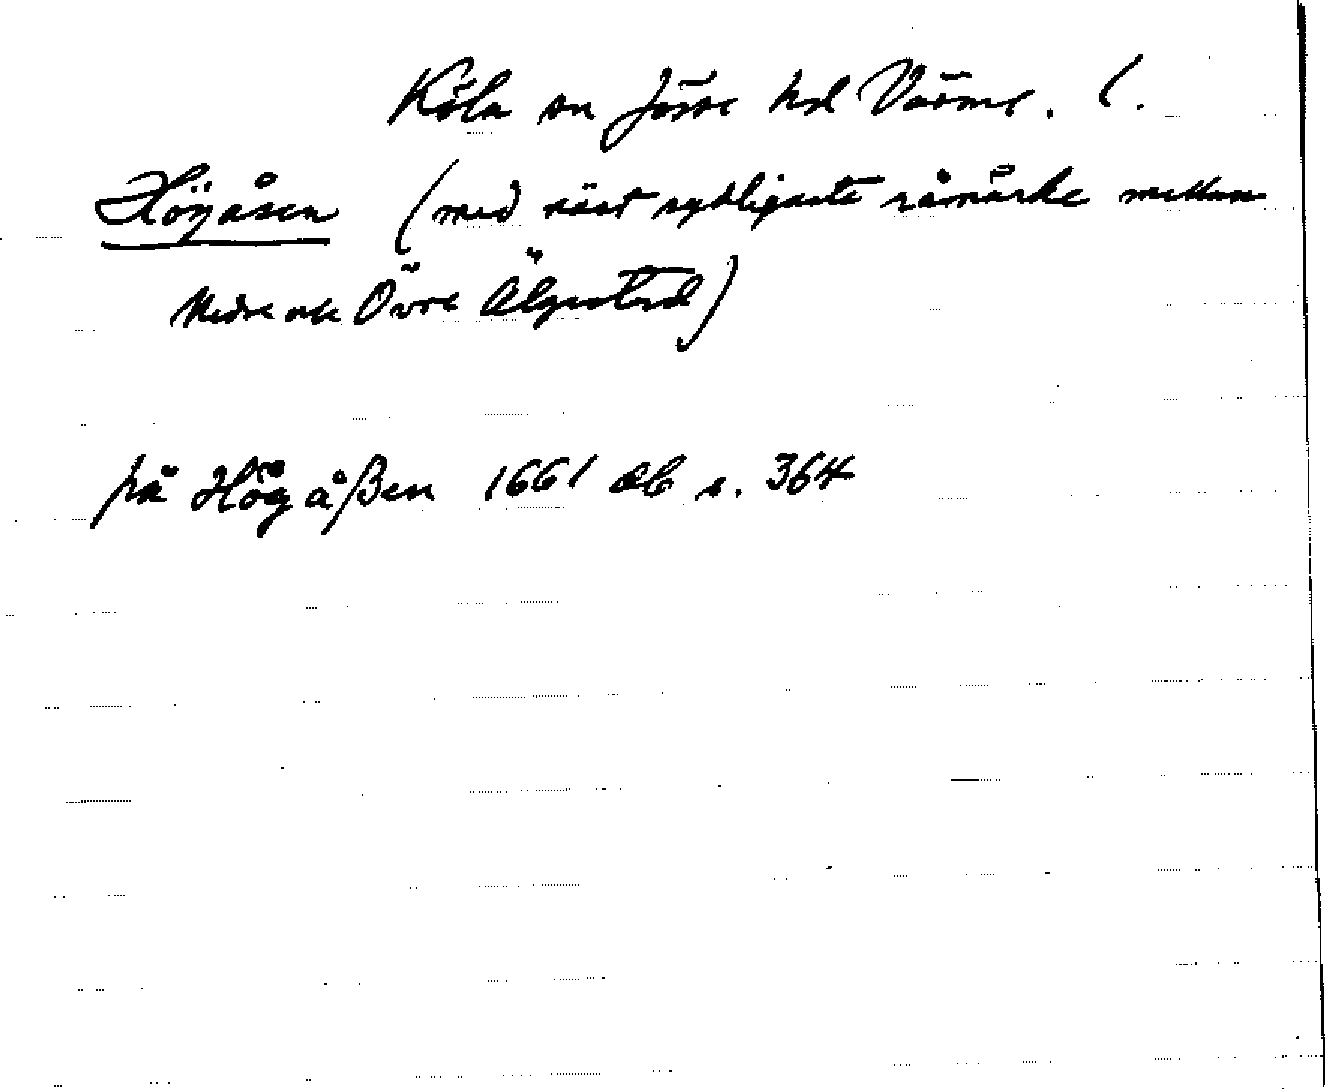 Köla sn Jösse hd Värml. l.
Högåsen (med näst sydligaste råmärke mellan
Nedre och Övre Älgested)
på Högåßen 1661 db s. 364